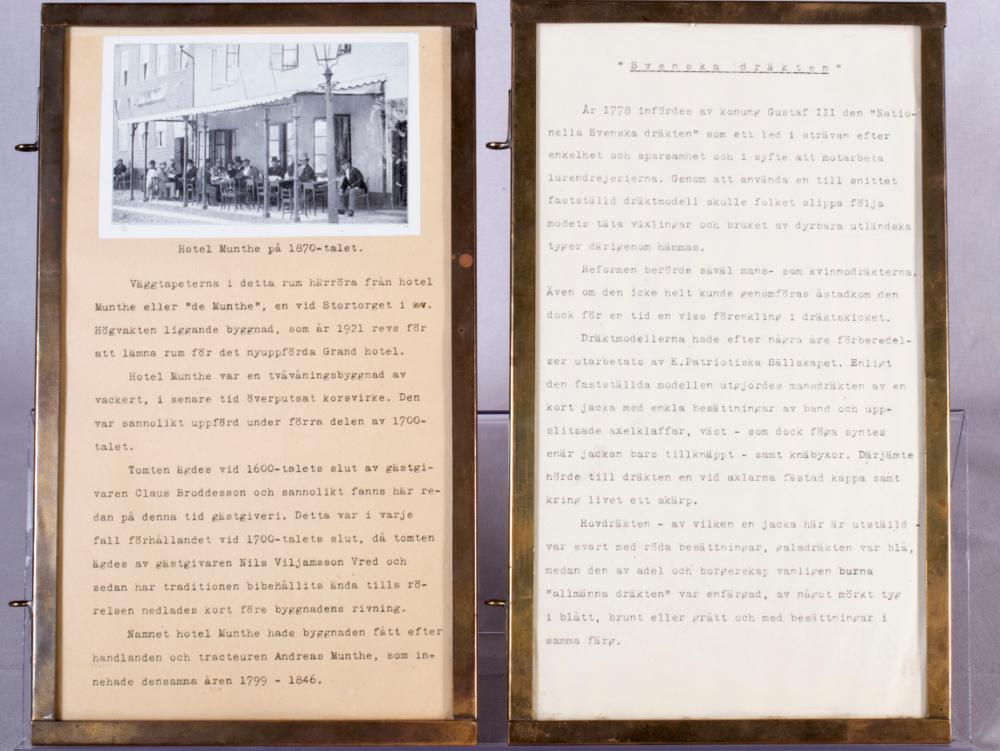 Hotel Munthe på 1870-talet.
Väggtapeterna i detta rum härröra från hotel
Munthe eller "de Munthe", en vid Stortorget i kv.
Högvakten liggande byggnad, som år 1921 revs för
att lämna rum för det nyuppförda Grand hotel.
Hotel Munthe var en tvåvåningsbyggnad av
vackert, i senare tid överputsat korsvirke. Den
var sannolikt uppförd under förra delen av 1700-
talet.
Tomten ägdes vid 1600-talets slut av gästgi-
varen Claus Broddesson och sannolikt fanns här re-
dan på denna tid gästgiveri. Detta var i varje
fall förhållandet vid 1700-talets slut, då tomten
ägdes av gästgivaren Nils Viljamsson Vred och
sedan har traditionen bibehållits ända tills rö-
relsen nedlades kort före byggnadens rivning.
Namnet hotel Munthe hade byggnaden fått efter
handlanden och tracteuren Andreas Munthe, som in-
nehade densamma åren 1799 - 1846.
"Svenska dräkten"
År 1778 infördes av konung Gustaf III den "Natio-
nella Svenska dräkten" som ett led i strävan efter
enkelhet och sparsamhet och i syfte att motarbeta
lurendrejerierna. Genom att använda en till snittet
fastställd dräktmodell skulle folket slippa följa
modets täta växlingar och bruket av dyrbara utländska
tyger därigenom hämmas.
Reformen berörde såväl mans- som kvinnodräkterna.
Även om den icke helt kunde genomföras åstadkom den
dock för en tid en viss förenkling i dräktskicket.
Dräktmodellerna hade efter några års förberedel-
ser utarbetats av K.Patriotiska Sällskapet. Enligt
den fastställda modellen utgjordes mansdräkten av en
kort jacka med enkla besättningar av band och upp-
slitsade axelklaffar, väst - som dock föga syntes
enär jackan bars tillknäppt - samt knäbyxor. Därjämte
hörde till dräkten en vid axlarna fästad kappa samt
kring livet ett skärp.
Hovdräkten - av vilken en jacka här är utställd -
var svart med röda besättningar, galadräkten var blå,
medan den av adel och borgerskap vanligen burna
"allmänna dräkten" var enfärgad, av något mörkt tyg
i blått, brunt eller grått och med besättningar i
samma färg.